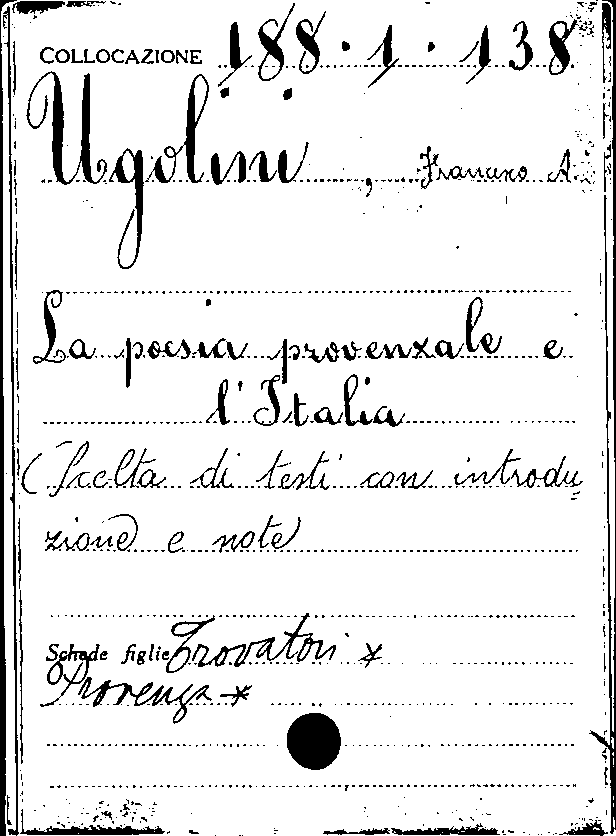 COLLOCAZIONE 188.1.138
Ugolini, Francesco A.
La poesia provenzale e
l'Italia
(Scelta di testi con introdu
zione e note)
Schede figlie Trovatori *
Provenza *